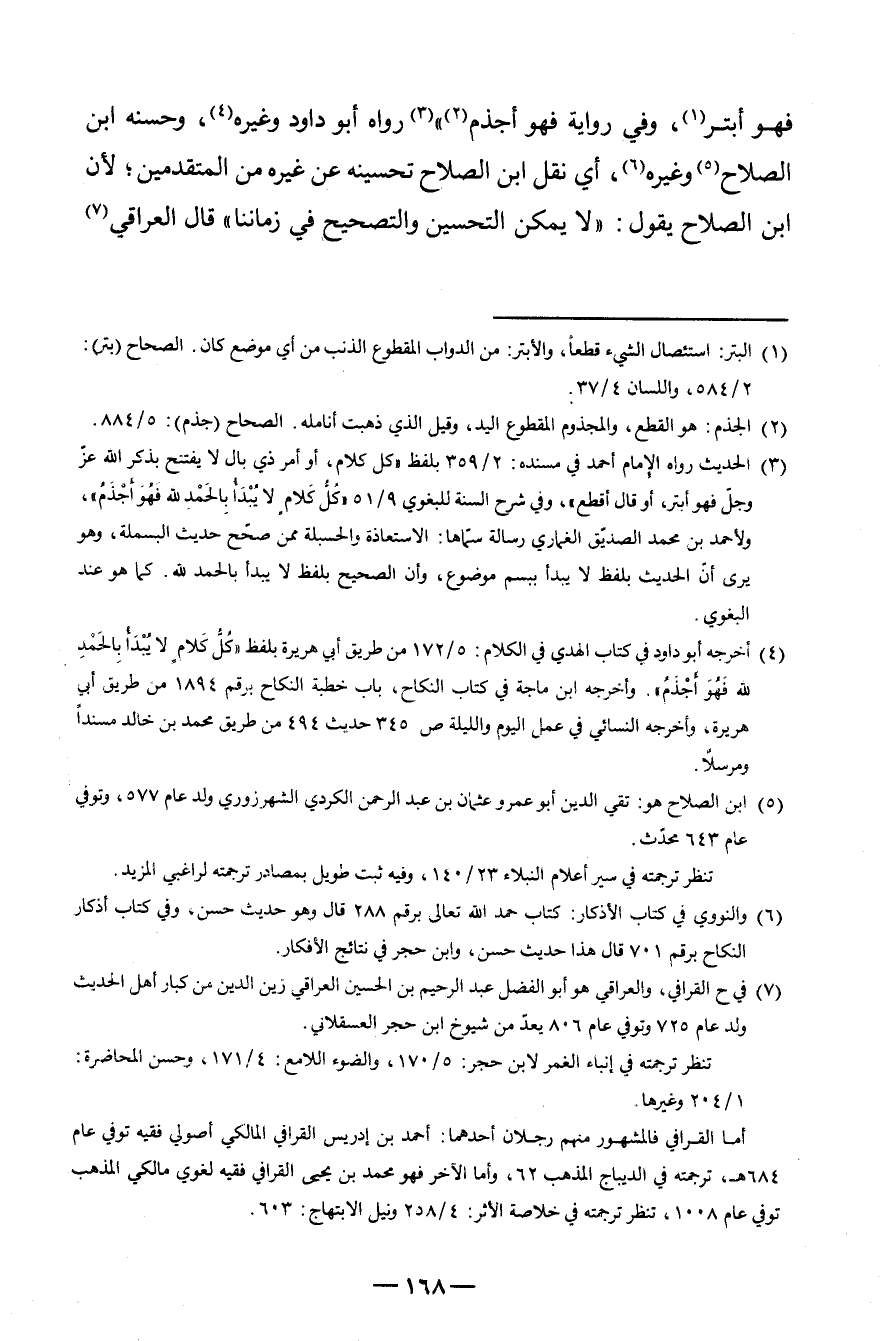 فهـو أبتـر(١)، وفي رواية فهو أجذم(٢)»(٣) رواه أبو داود وغيره(٤)، وحسنه ابن
الصلاح(٥) وغيره(٦)، أي نقل ابن الصلاح تحسينه عن غيره من المتقدمين؛ لأن
ابن الصلاح يقول: «لا يمكن التحسين والتصحيح في زماننا» قال العراقي(٧)
(١) البتر: استئصال الشيء قطعاً، والأبتر: من الدواب المقطوع الذنب من أي موضع كان. الصحاح (بتر):
٥٨٤/٢، واللسان ٣٧/٤.
(٢) الجذم: هو القطع، والمجذوم المقطوع اليد، وقيل الذي ذهبت أنامله. الصحاح (جذم): ٨٨٤/٥.
(٣) الحديث رواه الإمام أحمد في مسنده: ٣٥٩/٢ بلفظ «كل كلام، أو أمر ذي بال لا يفتتح بذكر الله عزّ
وجلّ فهو أبتر، أو قال أقطع»، وفي شرح السنة للبغوي ٥١/٩ «كُلُّ كَلامٍ لا يُبْدَأُ بِالحَمْدِ لله فَهُوَ أَجْذَمُ»،
ولأحمد بن محمد الصديّق الغماري رسالة سمّاها: الاستعاذة والحسبلة ممن صحّح حديث البسملة، وهو
يرى أنّ الحديث بلفظ لا يبدأ ببسم موضوع، وأن الصحيح بلفظ لا يبدأ بالحمد لله. كما هو عند
البغوي.
(٤) أخرجه أبو داود في كتاب الهدي في الكلام: ١٧٢/٥ من طريق أبي هريرة بلفظ «كُلُّ كَلامٍ لا يُبْدَأُ بِالحَمْدِ
لله فَهُوَ أَجْذَمُ». وأخرجه ابن ماجة في كتاب النكاح، باب خطبة النكاح برقم ١٨٩٤ من طريق أبي
هريرة، وأخرجه النسائي في عمل اليوم والليلة ص ٣٤٥ حديث ٤٩٤ من طريق محمد بن خالد مسنداً
ومرسلاً.
(٥) ابن الصلاح هو: تقي الدين أبو عمرو عثمان بن عبد الرحمن الكردي الشهرزوري ولد عام ٥٧٧، وتوفي
عام ٦٤٣ محدّث.
تنظر ترجمته في سير أعلام النبلاء ١٤٠/٢٣، وفيه ثبت طويل بمصادر ترجمته لراغبي المزيد.
(٦) والنووي في كتاب الأذكار: كتاب حمد الله تعالى برقم ٢٨٨ قال وهو حديث حسن، وفي كتاب أذكار
النكاح برقم ٧٠١ قال هذا حديث حسن، وابن حجر في نتائج الأفكار.
(٧) في ح القرافي، والعراقي هو أبو الفضل عبد الرحيم بن الحسين العراقي زين الدين من كبار أهل الحديث
ولد عام ٧٢٥ وتوفي عام ٨٠٦ يعدّ من شيوخ ابن حجر العسقلاني.
تنظر ترجمته في إنباء الغمر لابن حجر: ١٧٠/٥، والضوء اللامع: ١٧١/٤، وحسن المحاضرة:
٢٠٤/١ وغيرها.
أمـا القـرافي فالمشهـور منهم رجـلان أحدهما: أحمد بن إدريس القرافي المالكي أصولي فقيه توفي عام
٦٨٤هـ، ترجمته في الديباج المذهب ٦٢، وأما الآخر فهو محمد بن يحيى القرافي فقيه لغوي مالكي المذهب
توفي عام ١٠٠٨، تنظر ترجمته في خلاصة الأثر: ٢٥٨/٤ ونيل الابتهاج: ٦٠٣.
— ١٦٨ —